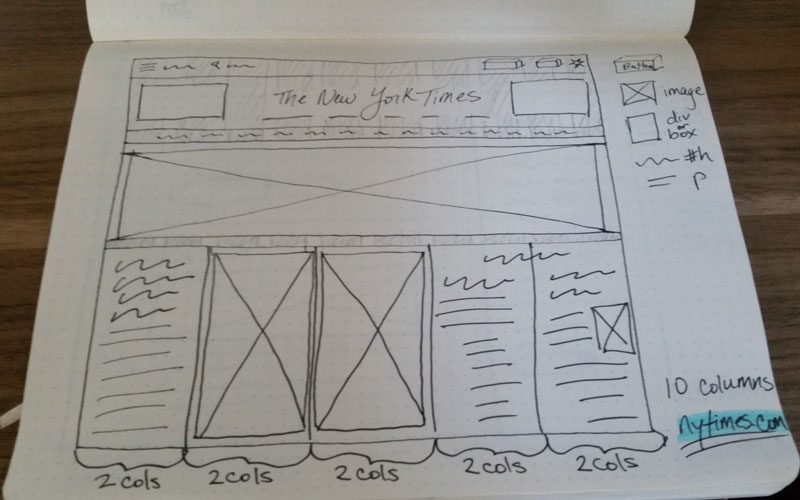 Button
The New York Times
image
div
or
box
#h
p
10 columns
nytimes.com
2 cols
2 cols
2 cols
2 cols
2 cols